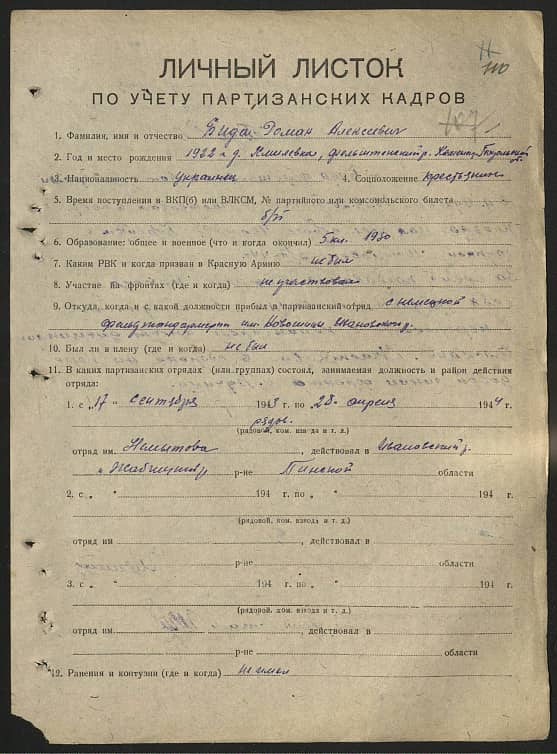 ЛИЧНЫЙ ЛИСТОК
ПО УЧЕТУ ПАРТИЗАНСКИХ КАДРОВ
107
1. Фамилия, имя и отчество Бида Роман Алексеевич
2. Год и место рождения 1922 г. д. р.
3. Национальность украинец 4. Соцположение крестьянин
5. Время поступления в ВКП(б) или ВЛКСМ, № партийного или комсомольского билета
б/п
6. Образование: общее и военное (что и когда окончил) 5 кл. 1930
7. Каким РВК и когда призван в Красную Армию не был
8. Участие на фронтах (где и когда) не участвовал
9. Откуда, когда и с какой должности прибыл в партизанский отряд с немецкой
им. Ивановск. р.
10. Был ли в плену (где и когда) не был
11. В каких партизанских отрядах (или группах) состоял, занимаемая должность и район действия
отряда:
1. с „17" сентября 1943 г. по 28 апреля 1944 г.
рядов.
(рядовой, ком. взвода и т. д.)
отряд им. Немытова, действовал в Ивановский р.
и Жабчицком р-не Пинской области
2. с „ " 194 г. по „ " 194 г.
(рядовой, ком. взвода и т. д.)
отряд им. , действовал в
р-не области
3. с „ " 194 г. по „ " 194 г.
(рядовой, ком. взвода и т. д.)
отряд им. , действовал в
р-не области
12. Ранения и контузии (где и когда) не имел